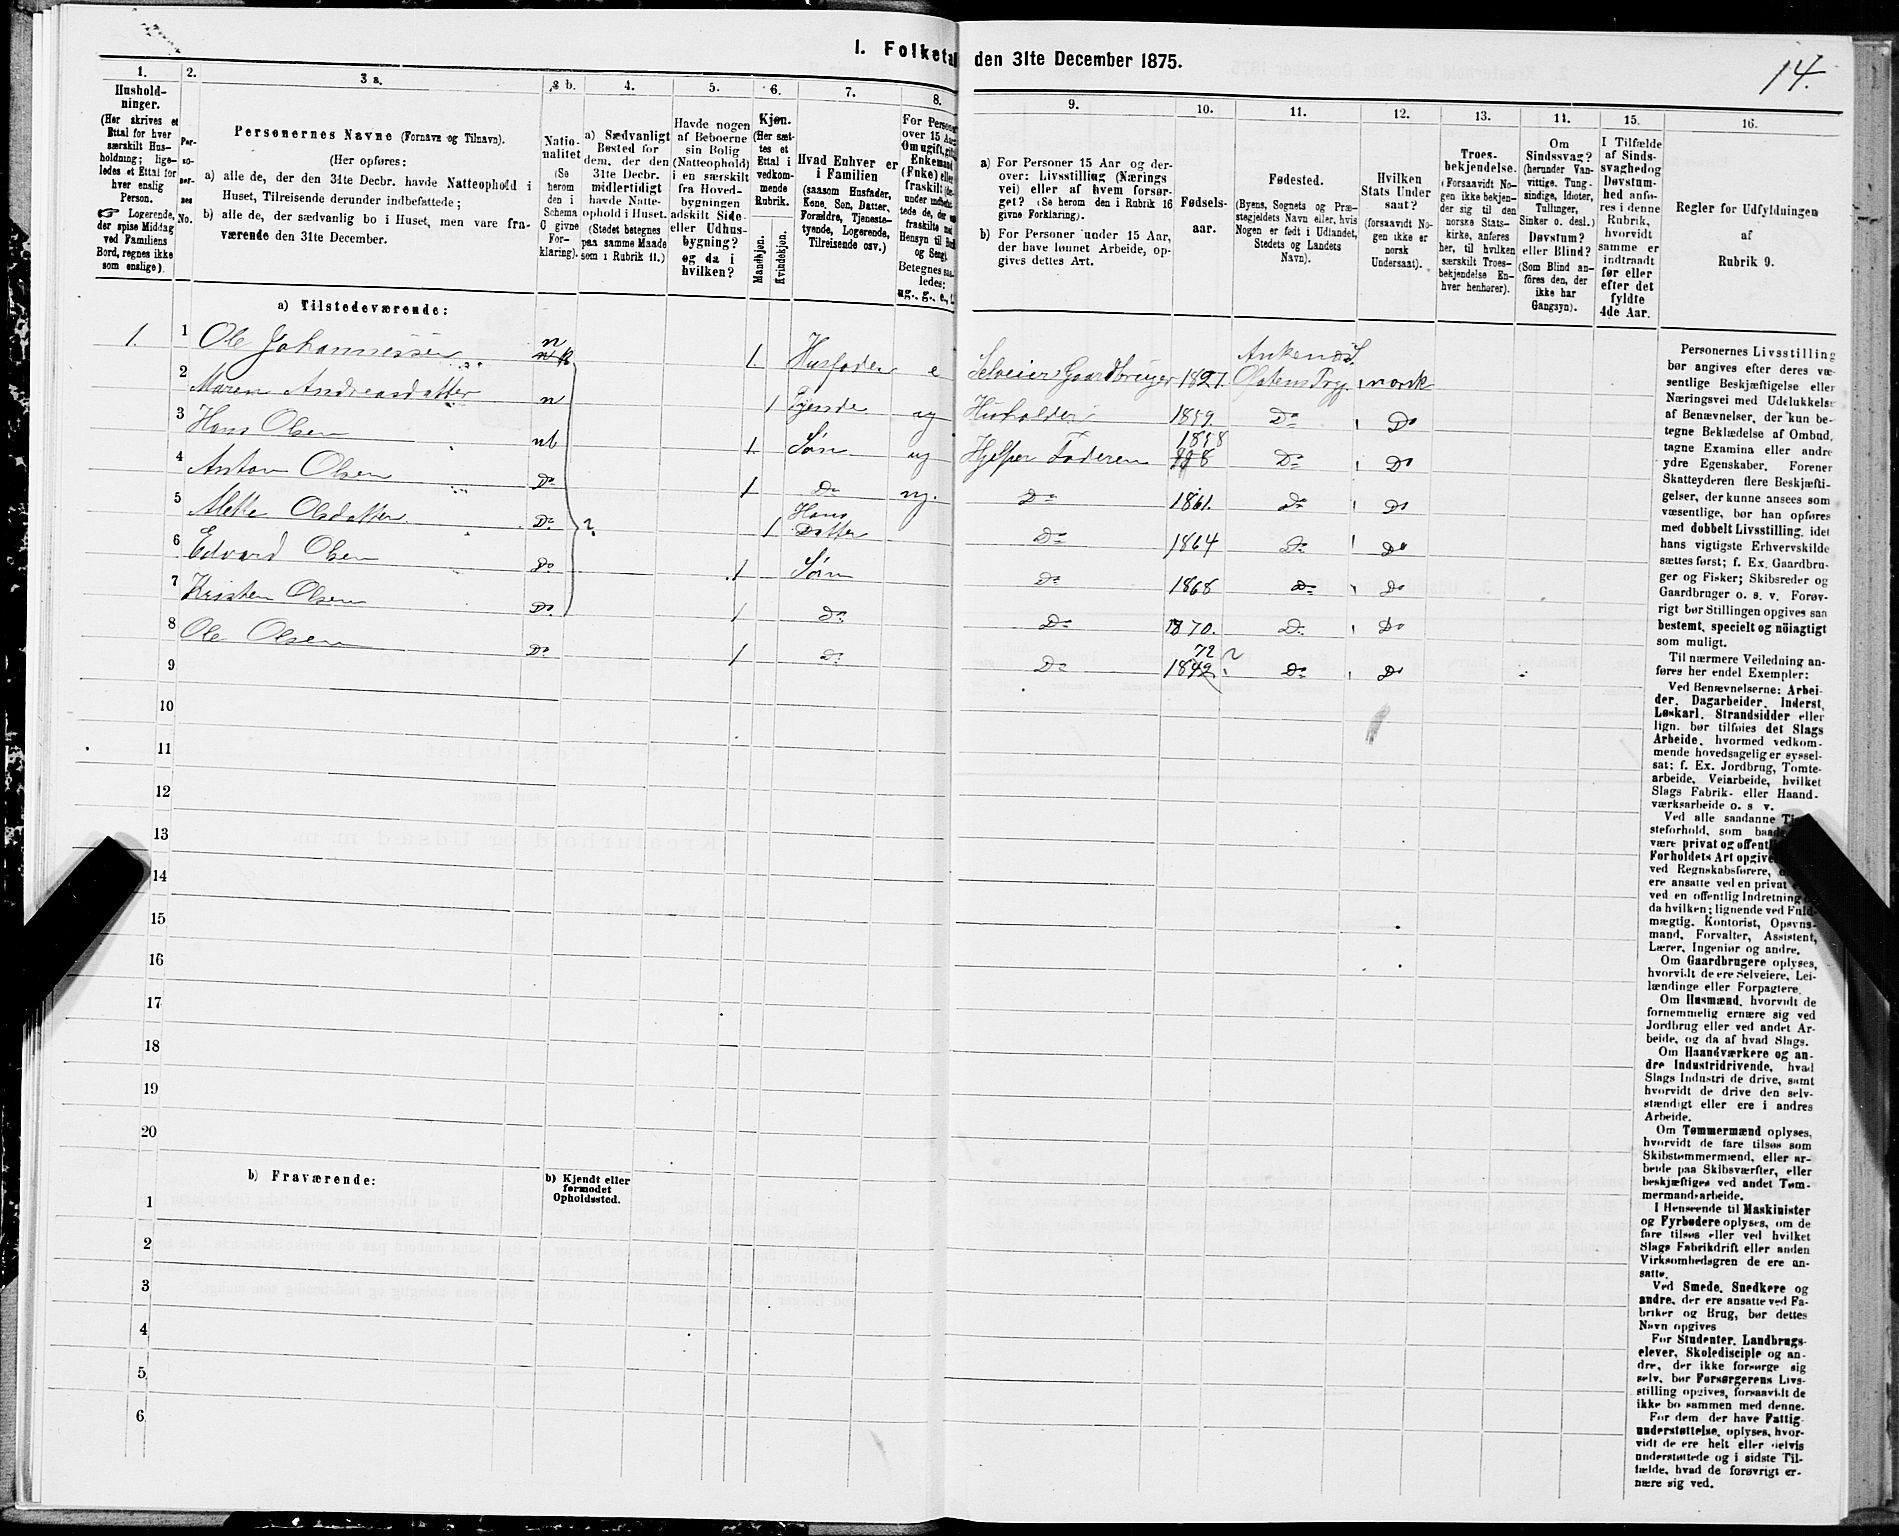 I. Folketal den 31te December 1875.
14.
1.
Hushold-
ninger.
(Her skrives et
Ettal for hver
særskilt Hus-
holdning; lige-
ledes et Ettal for
hver enslig
Person.
☞ Logerende,
der spise Middag
ved Familiens
Bord, regnes ikke
som enslige).
2.
Per-
so-
ner-
nes
No.
3 a.
Personernes Navne (Fornavn og Tilnavn).
(Her opføres:
a) alle de, der den 31te Decbr. havde Natteophold i
Huset, Tilreisende derunder indbefattede;
b) alle de, der sædvanlig bo i Huset, men vare fra-
værende den 31te December.
3 b.
Natio-
nalitet
(Se
herom
den i
Schema
O givne
For-
klaring).
4.
a) Sædvanligt
Bosted for
dem, der den
31te Decbr.
midlertidigt
havde Natte-
ophold i Huset.
(Stedet betegnes
paa samme Maade
som i Rubrik 11.)
5.
Havde nogen
af Beboerne
sin Bolig
(Natteophold)
i en særskilt
fra Hoved-
bygningen
adskilt Side-
eller Udhus-
bygning?
og da i
hvilken?
6.
Kjøn.
(Her sæt-
tes et
Ettal i
vedkom-
mende
Rubrik.
Mandkjøn.
Kvindekjøn.
7.
Hvad Enhver er
i Familien
(saasom Husfader,
Kone, Søn, Datter,
Forældre, Tjeneste-
tyende, Logerende,
Tilreisende osv.)
8.
For Personer
over 15 Aar:
Betegnes saa-
ledes:
ug., g., e., f.
9.
a) For Personer 15 Aar og der-
over: Livsstilling (Nærings
vei) eller af hvem forsør-
get? (Se herom den i Rubrik 16
givne Forklaring).
b) For Personer under 15 Aar,
der have lønnet Arbeide, op-
gives dettes Art.
10.
Fødsels-
aar.
11.
Fødested.
(Byens, Sognets og Præ-
stegjeldets Navn eller, hvis
Nogen er født i Udlandet,
Stedets og Landets
Navn).
12.
Hvilken
Stats Under
saat?
(forsaavidt No-
gen ikke er
norsk
Undersaat).
13.
Troes-
bekjendelse.
(Forsaavidt No-
gen ikke bekjen-
der sig til den
norske Stats-
kirke, anføres
her, til hvilken
særskilt Troes-
bekjendelse En-
hver henhører).
14.
Om
Sindssvag?
(herunder Van-
vittige, Tung-
sindige, Idioter,
Tullinger,
Sinker o. desl.)
Døvstum?
eller Blind?
(Som Blind an-
føres den, der
ikke har
Gangsyn).
15.
I Tilfælde
af Sinds-
svaghedog
Døvstum-
hed anfø-
res i denne
Rubrik,
hvorvidt
samme er
indtraadt
før eller
efter det
fyldte
4de Aar.
16.
Regler for Udfyldningen
af
Rubrik 9.
a) Tilstedeværende:
1. 1 Ole Johannessen n 1 Husfader e Selveier Gaardbruger 1827. norsk
2 Maren Andreasdatter n 1 Tyende ug Husholder 1859. Do Do
3 Hans Olsen nb 1 Søn ug Hjelper Faderen 1858 Do Do
4 Anton Olsen Do 1 Do ug. Do 1861. Do Do
5 Mette Olsdatter Do ? 1 Hans Datter Do 1864 Do Do
6 Edvard Olsen Do 1 Søn Do 1868 Do Do
7 Kristen Olsen Do 1 Do Do 1870. Do Do
8 Ole Olsen Do 1 Do Do 72 ? 1842. Do Do
9
10
11
12
13
14
15
16
17
18
19
20
b) Fraværende:
b) Kjendt eller
formodet
Opholdssted.
1
2
3
4
5
6
Personernes Livsstilling
bør angives efter deres væ-
sentlige Beskjæftigelse eller
Næringsvei med Udelukkelse
af Benævnelser, der kun be-
tegne Beklædelse af Ombud,
tagne Examina eller andre
ydre Egenskaber. Forener
Skatteyderen flere Beskjæfti-
gelser, der kunne ansees som
væsentlige, bør han opføres
med dobbelt Livsstilling, idet
hans vigtigste Erhvervskilde
sættes først; f. Ex. Gaardbru-
ger og Fisker; Skibsreder og
Gaardbruger o. s. v. Forøv-
rigt bør Stillingen opgives saa
bestemt, specielt og nöiagtigt
som muligt.
Til nærmere Veiledning an-
føres her endel Exempler:
Ved Benævnelserne: Arbei-
der, Dagarbeider, Inderst,
Løskarl, Strandsidder eller
lign. bør tilføies det Slags
Arbeide, hvormed vedkom-
mende hovedsagelig er syssel-
sat; f. Ex. Jordbrug, Tomte-
arbeide, Veiarbeide, hvilket
Slags Fabrik- eller Haand-
værksarbeide o. s v.
Ved alle saadanne
steforhold, som
være privat og
Forholdets Art
ved Regnskabsførere,
ere ansatte ved en privat
ved en offentlig Indretning
da hvilken; lignende ved Fuld-
mægtig, Kontorist, Opsyns-
mand, Forvalter, Assistent,
Lærer, Ingeniør og andre.
Om Gaardbrugere oplyses,
hvorvidt de ere Selveiere, Lei-
lændinge eller Forpagtere.
Om Husmænd, hvorvidt de
fornemmelig ernære sig ved
Jordbrug eller ved andet Ar-
beide, og da af hvad Slags.
Om Haandværkere og an-
dre Industridrivende, hvad
Slags Industri de drive, samt
hvorvidt de drive den selv-
stændigt eller ere i andres
Arbeide.
Om Tømmermænd oplyses,
hvorvidt de fare tilsøs som
Skibstømmermænd, eller ar-
beide paa Skibsværfter, eller
beskjæftiges ved andet Tøm-
mermandsarbeide.
I Henseende til Maskinister
og Fyrbødere oplyses, om de
fare tilsøs eller ved hvilket
Slags Fabrikdrift eller anden
Virksomhedsgren de ere an-
satte.
Ved Smede, Snedkere og
andre, der ere ansatte ved Fa-
briker og Brug, bør dettes
Navn opgives
For Studenter, Landbrugs-
elever, Skoledisciple og an-
dre, der ikke forsørge sig
selv, bør Forsørgerens Livs-
stilling opgives, forsaavidt de
ikke bo sammen med denne.
For dem, der have Fattig-
understøttelse, oplyses, hvor-
vidt de ere helt eller delvis
understøttede og i sidste Til-
fælde, hvad de forøvrigt er-
nære sig ved.